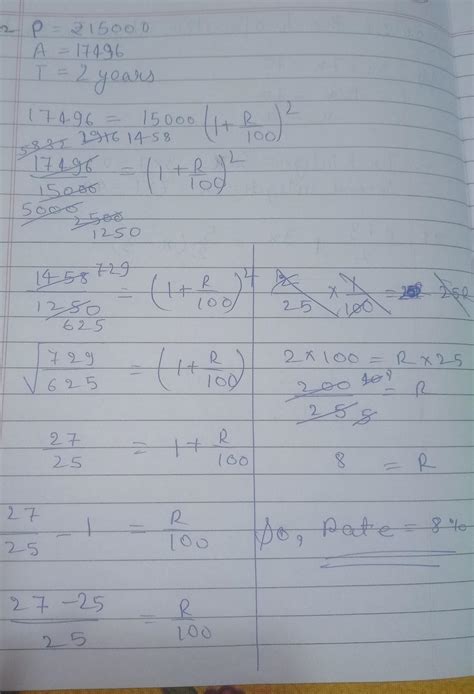 2 P = 215000
A = 17496
T = 2 years
17496 = 15000 (1 + R/100)^2
5832 2916 1458
17496/15000 = (1 + R/100)^2
5000 2500
1250
1458/1250 = (1 + R/100)^2
729
625
√729/625 = (1 + R/100)
27/25 = 1 + R/100
27/25 - 1 = R/100
27 - 25/25 = R/100
2/25 × 1/100 = 250
2 × 100 = R × 25
200/25 = R
8 = R
So, Rate = 8%